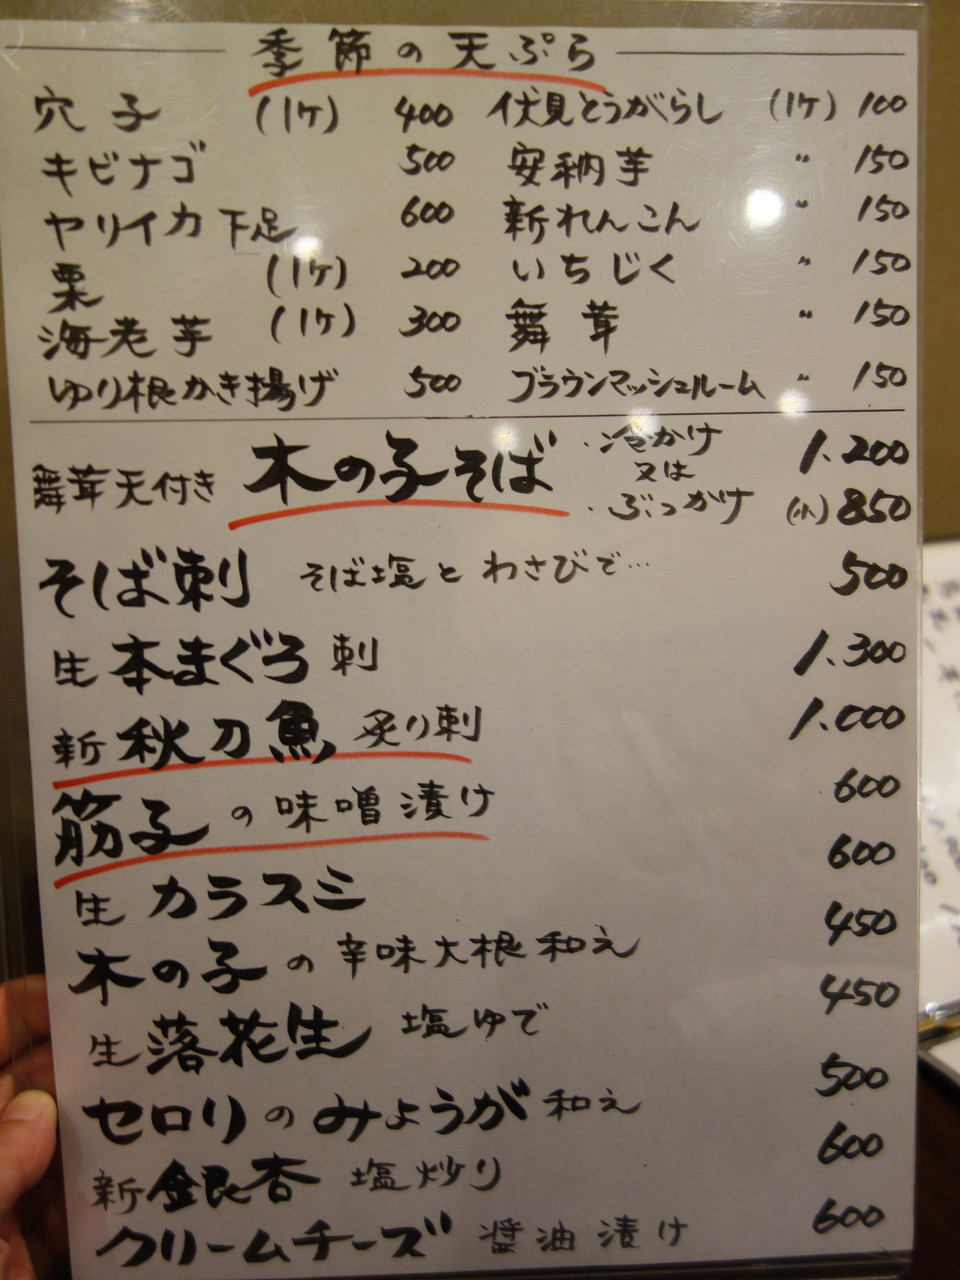 季節の天ぷら
穴子 (1ケ) 400 伏見とうがらし (1ケ) 100
キビナゴ 500 安納芋 〃 150
ヤリイカ下足 600 新れんこん 〃 150
栗 (1ケ) 200 いちじく 〃 150
海老芋 (1ケ) 300 舞茸 〃 150
ゆり根かき揚げ 500 ブラウンマッシュルーム 〃 150
舞茸天付き 木の子そば ・冷かけ 1.200
又は
・ぶっかけ (小) 850
そば刺 そば塩とわさびで… 500
生本まぐろ刺 1.300
新秋刀魚 炙り刺 1.000
筋子の味噌漬け 600
生カラスミ 600
木の子の辛味大根和え 450
生落花生 塩ゆで 450
セロリのみょうが和え 500
新銀杏 塩炒り 600
クリームチーズ 醤油漬け 600